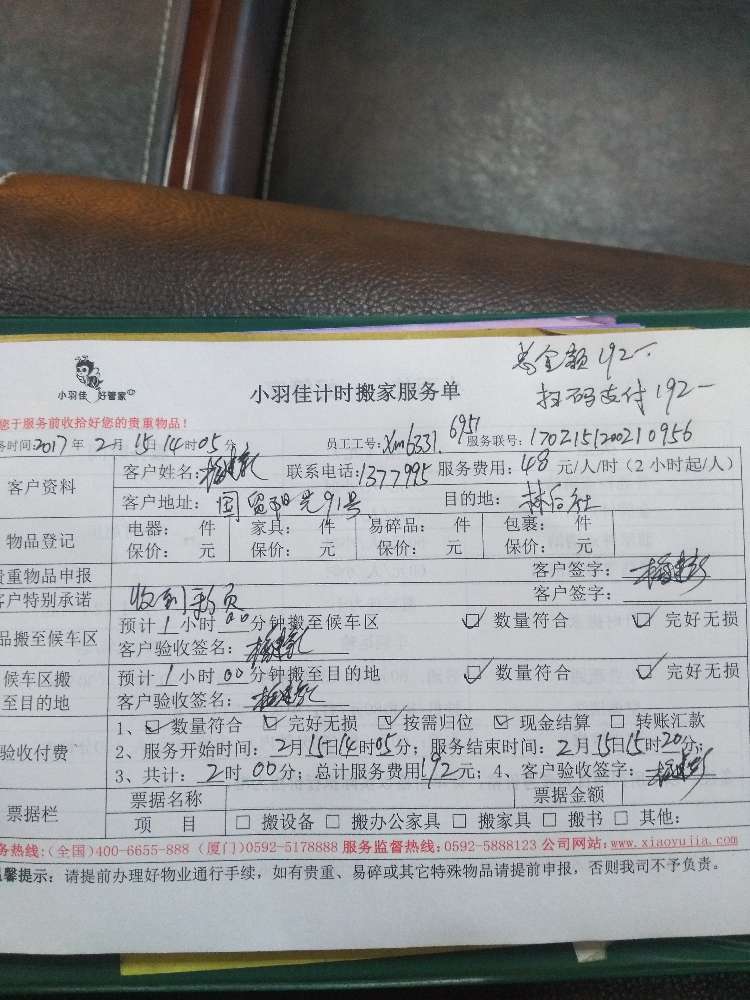 总金额192-
小羽佳 好管家
小羽佳计时搬家服务单
扫码支付192-
您于服务前收拾好您的贵重物品！
务时间:2017年2月15日14时05分 员工工号:xm6331.6951 服务联号:170215120021 0956
客户资料
客户姓名: 联系电话:1377995 服务费用:48元/人/时(2小时起/人)
客户地址:国贸阳光91号 目的地:林后社
物品登记
电器: 件 家具: 件 易碎品: 件 包裹: 件
保价: 元 保价: 元 保价: 元 保价: 元
贵重物品申报 客户签字:
客户特别承诺 收到 客户签字:
品搬至候车区
预计1小时00分钟搬至候车区 ☑ 数量符合 ☑ 完好无损
客户验收签名:
候车区搬
至目的地
预计1小时00分钟搬至目的地 ☑ 数量符合 ☑ 完好无损
客户验收签名:
验收付费
1、☑ 数量符合 ☑ 完好无损 ☑ 按需归位 ☑ 现金结算 □ 转账汇款
2、服务开始时间:2月15日14时05分;服务结束时间:2月15日15时20分;
3、共计:2时00分;总计服务费用192元;4、客户验收签字:
票据栏
票据名称 票据金额
项 目 □ 搬设备 □ 搬办公家具 □ 搬家具 □ 搬书 □ 其他:
务热线:(全国)400-6655-888 (厦门)0592-5178888 服务监督热线:0592-5888123 公司网站:www.xiaoyujia.com
温馨提示:请提前办理好物业通行手续,如有贵重、易碎或其它特殊物品请提前申报,否则我司不予负责。